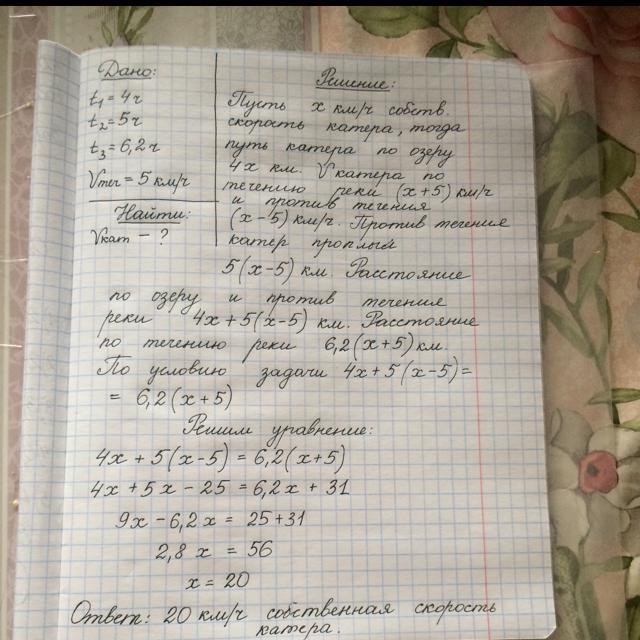 Дано:
t₁ = 4ч
t₂ = 5ч
t₃ = 6,2ч
Vтеч = 5 км/ч
Найти:
Vкат – ?
Решение:
Пусть х км/ч собств.
скорость катера, тогда
путь катера по озеру
4х км. Vкатера по
течению реки (х+5) км/ч
и против течения
(х-5) км/ч. Против течения
катер проплыл
5(х-5) км. Расстояние
по озеру и против течения
реки 4х+5(х-5) км. Расстояние
по течению реки 6,2(х+5)км.
По условию задачи 4х+5(х-5)=
= 6,2(х+5)
Решим уравнение:
4х + 5(х-5) = 6,2(х+5)
4х + 5х - 25 = 6,2х + 31
9х - 6,2х = 25+31
2,8 х = 56
х = 20
Ответ: 20 км/ч собственная скорость
катера.